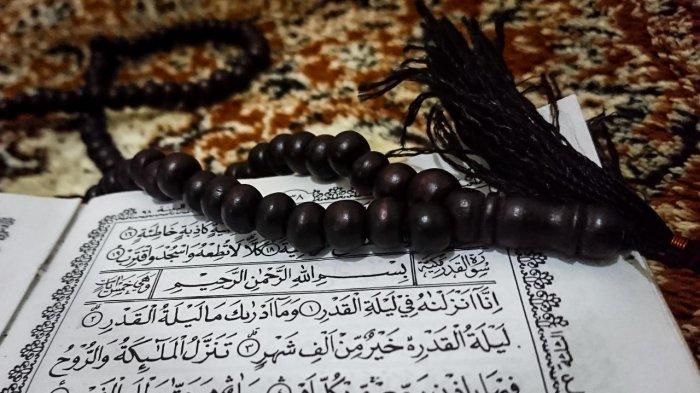 كَاذِبَةٍ خَاطِئَةٍ
١٨ كَلَّا لَا تُطِعْهُ وَاسْجُدْ وَاقْتَرِبْ
سُورَةُ الْقَدْرِ مَكِّيَّةٌ بِسْمِ اللهِ الرَّحْمٰنِ الرَّحِيْمِ وَهِيَ خَمْسُ اٰيَاتٍ
اِنَّآ اَنْزَلْنٰهُ فِيْ لَيْلَةِ الْقَدْرِ ١ وَمَآ اَدْرٰىكَ مَا لَيْلَةُ الْقَدْرِ ٢
لَيْلَةُ الْقَدْرِ ەۙ خَيْرٌ مِّنْ اَلْفِ شَهْرٍ ٣ تَنَزَّلُ الْمَلٰٓئِكَةُ وَالرُّوْحُ